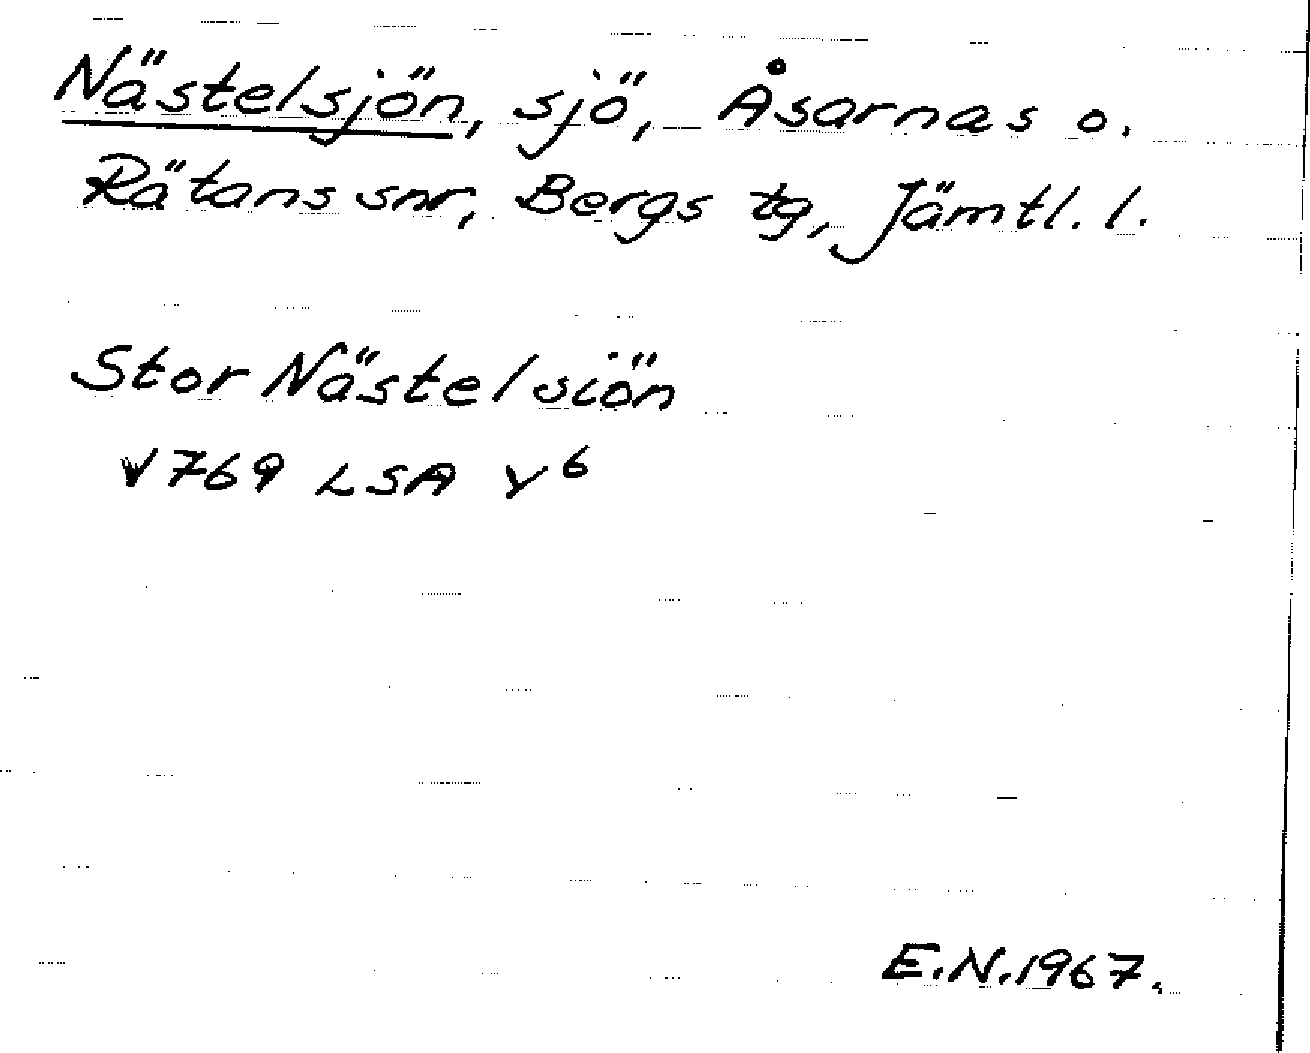 Nästelsjön, sjö, Åsarnas o.
Rätans snr, Bergs tg, Jämtl. l.
Stor Nästelsiön
1769 LSA Y6
E.N. 1967.